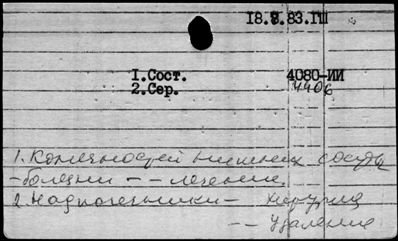 18.8.83.ГШ
1.Сост. 4080-ИИ
2.Сер. 4406
1. Конечностей нижних сосуды
- болезни - - лечение
2. Надпочечники -
- - удаление